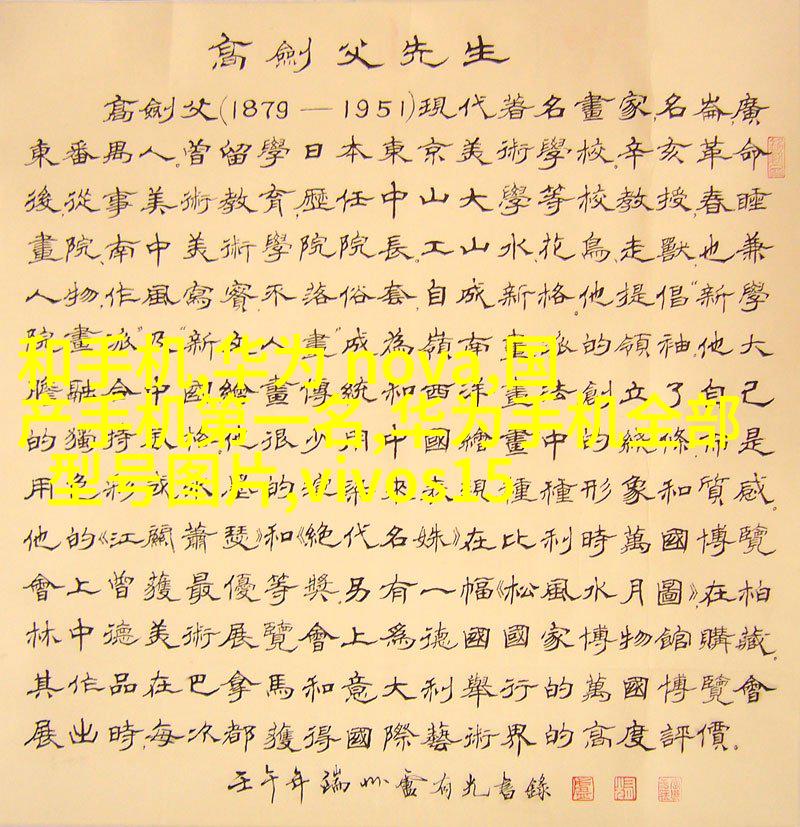 高劍父先生
高劍父(1879—1951)現代著名畫家,名崙,廣
東番禺人.曾留學日本東京美術學校.辛亥革命
後,從事美術教育,歷任中山大學等校教授,春睡
畫院,南中美術學院院長.工山水,花鳥,走獸,也兼
人物,作風寫實,不落俗套,自成新格.他提倡"新學
院畫派"及"新文人畫"成為嶺南畫派的領袖.他大
和手机,华为 nova,国
膽融合中國繪畫傳統和西洋畫法,創立了自己
产手机第一名,华为手机全部
的獨特風格.他很少用中國繪畫中的綫條,而是
型号图片,vivos15
用色彩或水墨的渲染來表現種種形象和質感.
他的《江關蕭瑟》和《絕代名姝》在比利時萬國博覽
會上曾獲最優等獎.另有一幅《松風水月圖》,在柏
林中德美術展覽會上爲德國國家博物館購藏.
其作品在巴拿馬和意大利舉行的萬國博覽會
展出時,每次都獲得國際藝術界的高度評價。
壬午年端州盧有光書錄